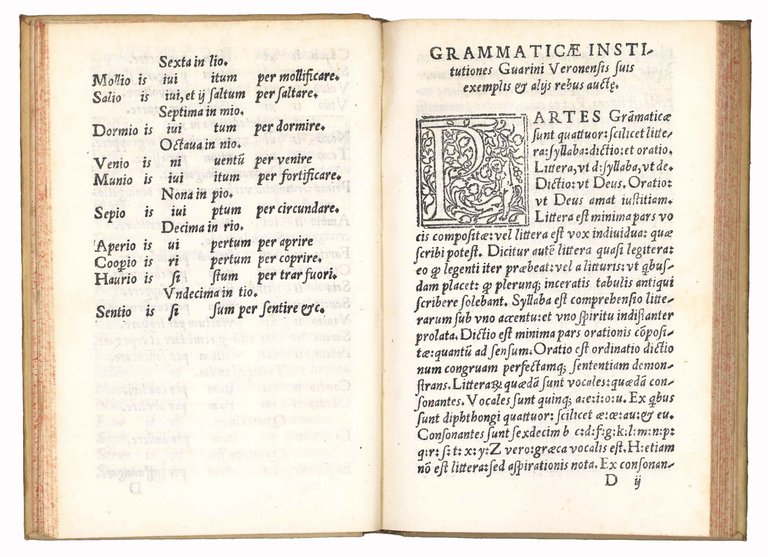 Sexta in lio.
Mollio is iui itum per mollificare.
Salio is iui, et ij saltum per saltare.
Septima in mio.
Dormio is iui tum per dormire.
Octaua in nio.
Venio is ni uentũ per venire
Munio is iui itum per fortificare.
Nona in pio.
Sepio is iui ptum per circundare.
Decima in rio.
Aperio is ui pertum per aprire
Coopio is ri pertum per coprire.
Haurio is si stum per trar fuori.
Vndecima in tio.
Sentio is si sum per sentire &c.
D
GRAMMATICÆ INSTI-
tutiones Guarini Veronensis suis
exemplis & alijs rebus auctę.
PARTES Grãmaticæ
sunt quattuor: scilicet litte-
ra: syllaba: dictio: et oratio.
Littera, vt d: syllaba, vt de.
Dictio: vt Deus. Oratio:
vt Deus amat iustitiam.
Littera est minima pars vo
cis compositæ: vel littera est vox indiuidua: quæ
scribi potest. Dicitur autẽ littera quasi legitera:
eo ꝙ legenti iter præbeat: vel a lituris: vt qbus-
dam placet: ꝙ plerunq; inceratis tabulis antiqui
scribere solebant. Syllaba est comprehensio litte-
rarum sub vno accentu: et vno spiritu indistanter
prolata. Dictio est minima pars orationis cõposi-
tæ: quantũ ad sensum. Oratio est ordinatio dictio
num congruam perfectamq; sententiam demon-
strans. Litteraꝝ quædã sunt vocales: quædã con-
sonantes. Vocales sunt quinq; a: e: i: o: u. Ex qbus
sunt diphthongi quattuor: scilicet æ: œ: au: & eu.
Consonantes sunt sexdecim b c: d: f: g: k: l: m: n: p:
q: r: s: t: x: y: Z vero: græca vocalis est. H: etiam
nõ est littera: sed aspirationis nota. Ex consonan-
D ij